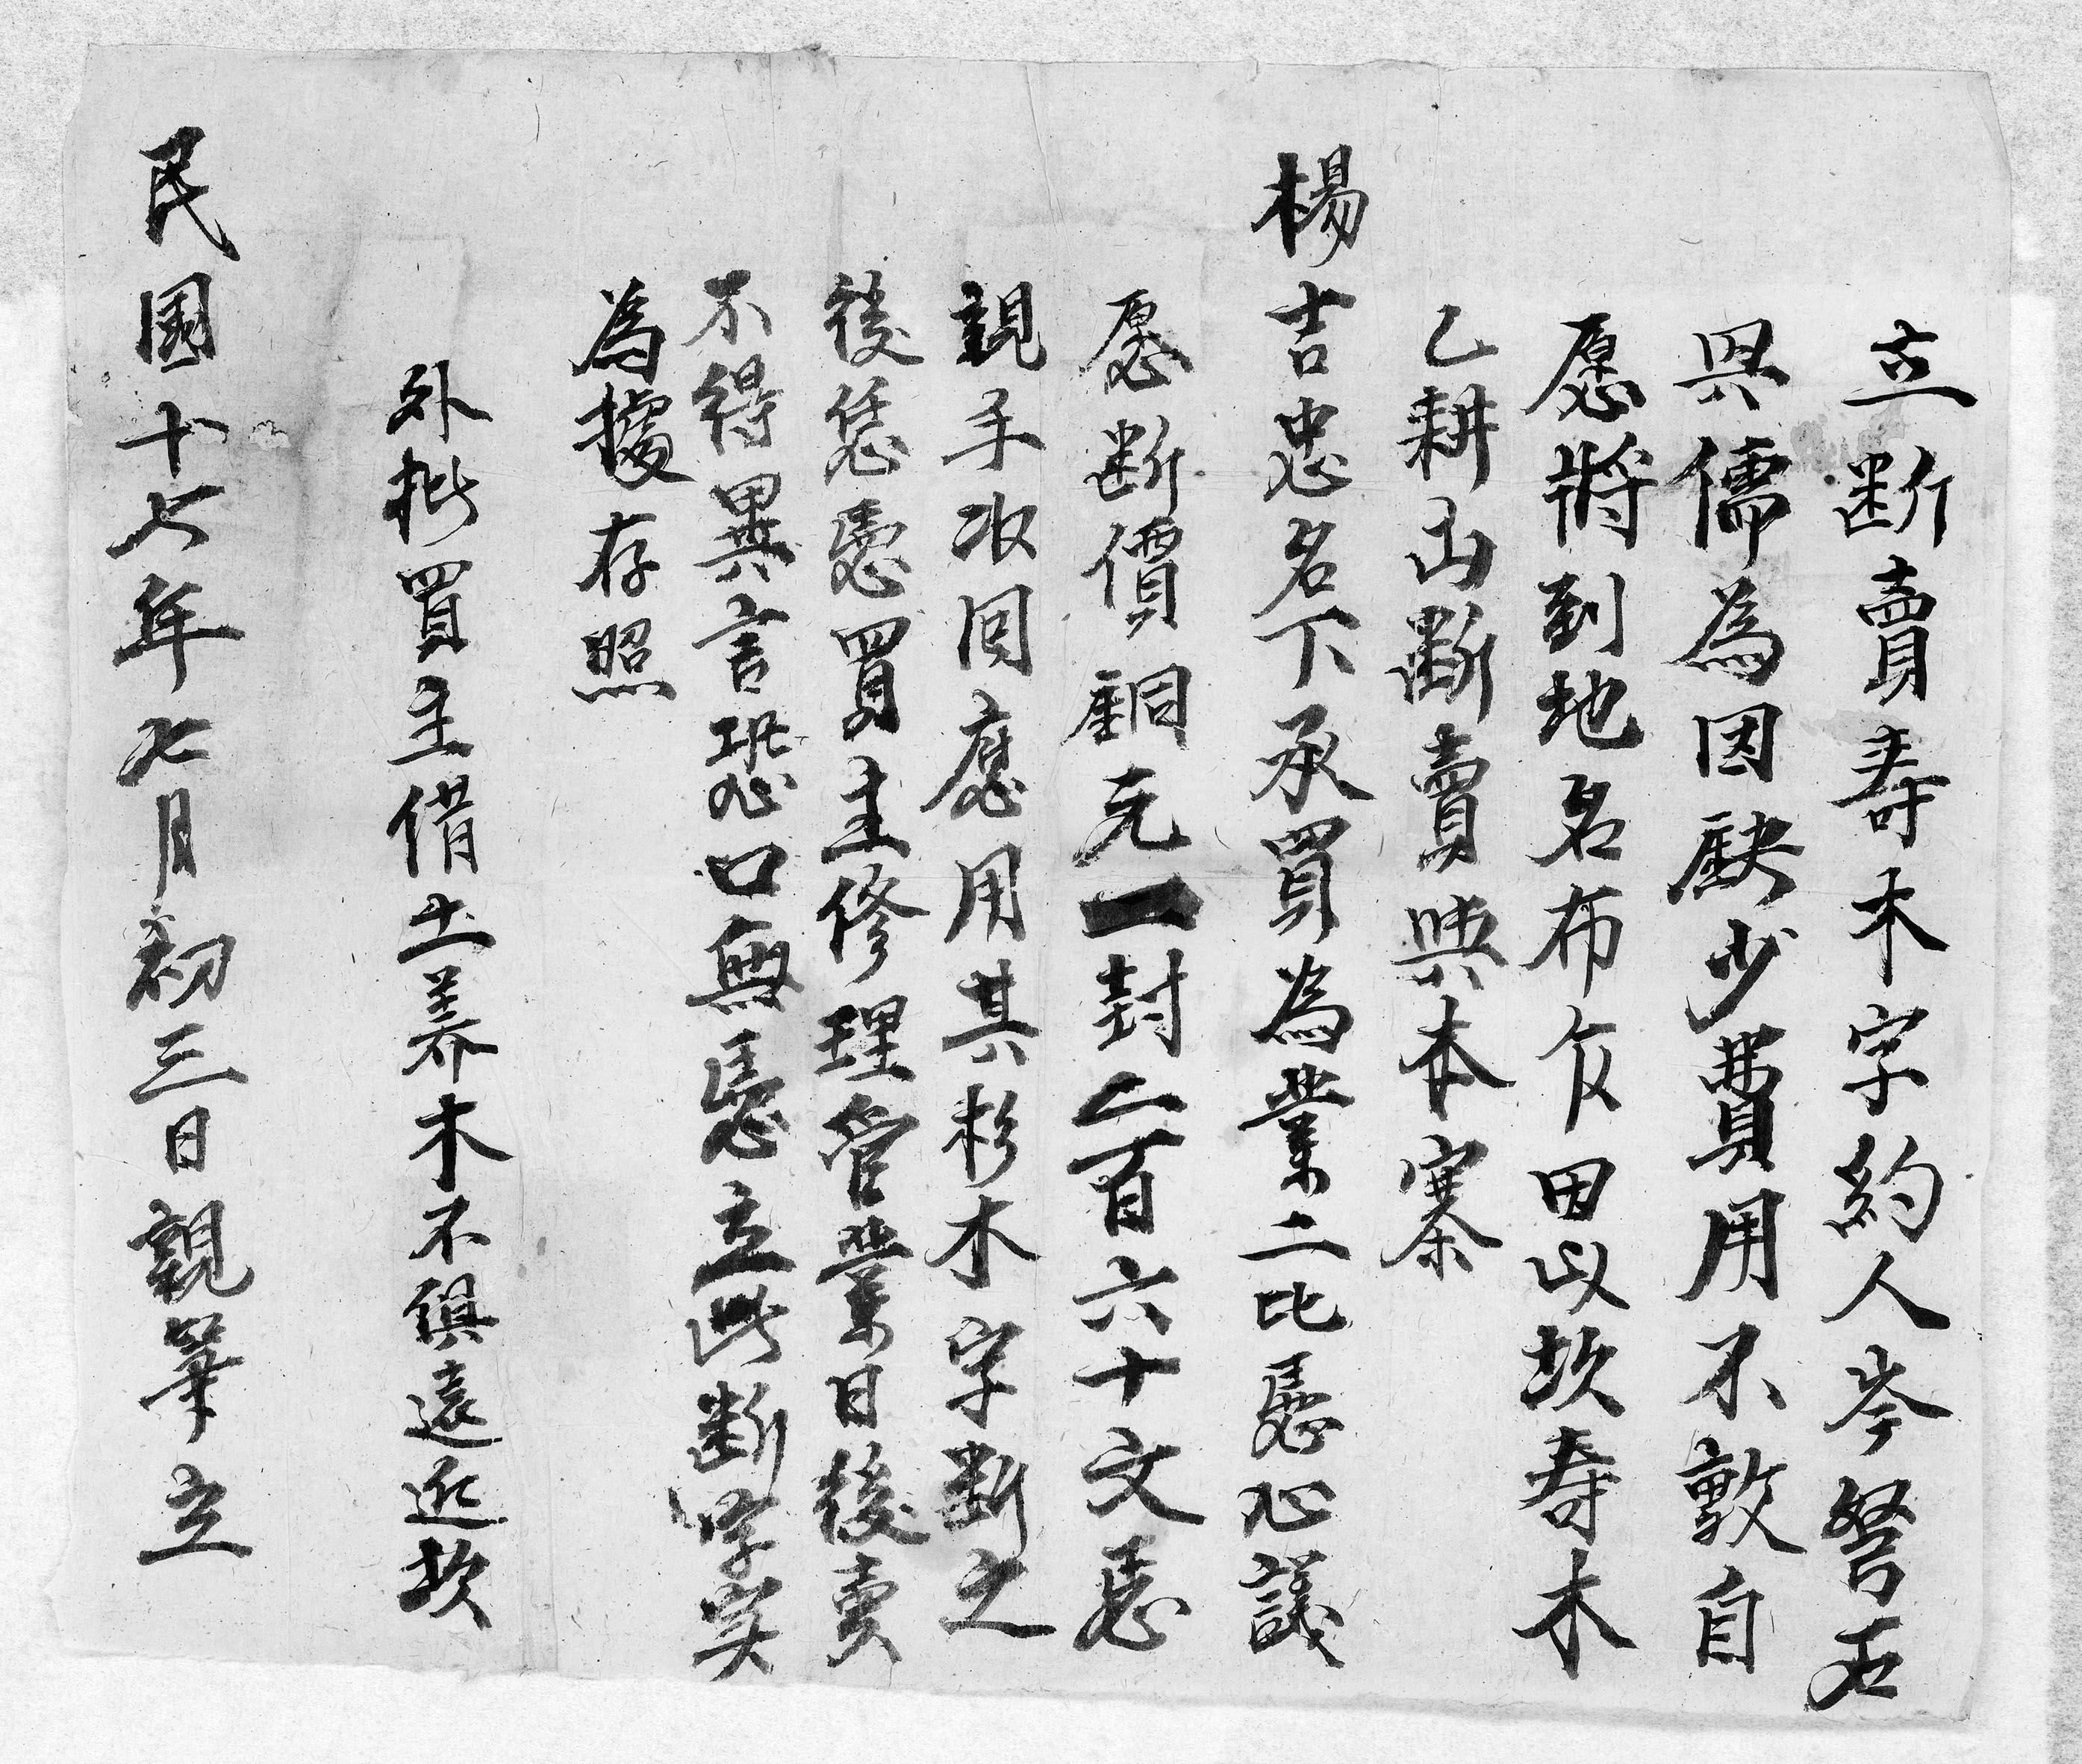 立断賣壽木字約人岑
興儒為因缺少費用不敷自
愿將到地名布  田 坎壽木
乙耕山斷賣與本寨
楊吉忠名下承買為業二比愿心議
愿断價銅元一封二百六十文愿
親手收回應用其杉木字斷之
後恁憑買主修理管業日後賣
不得異言恐口無憑立此斷字实
為據存照
外批買主借土养木不俱遠近坎
民國十七年七月初三日親筆立